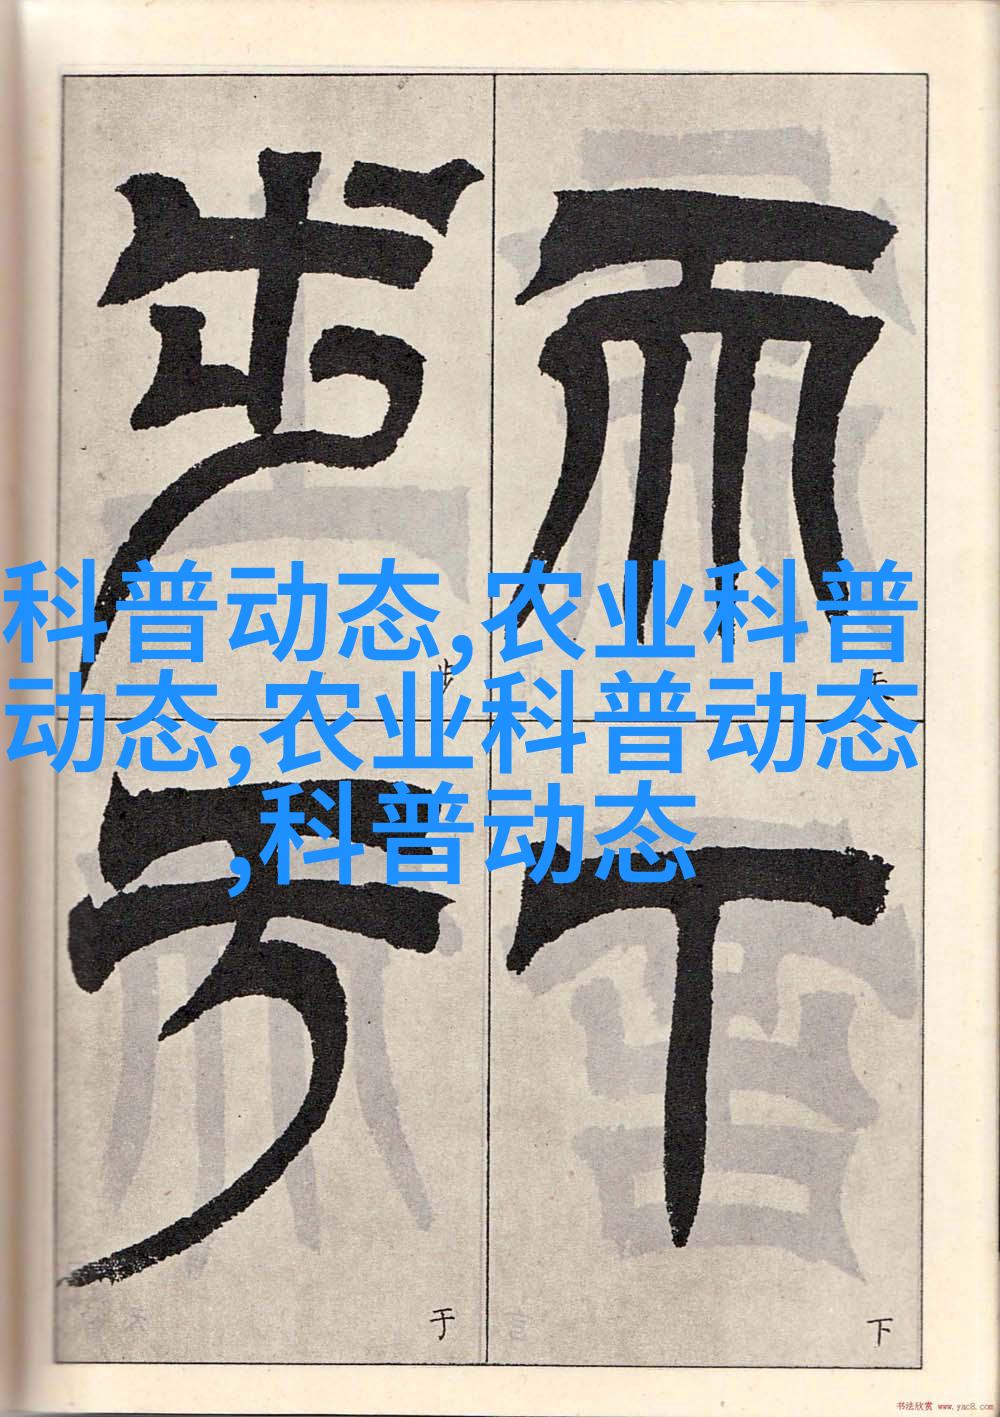 天
天
下
下
步
步
于
于
科普动态,农业科普
动态,农业科普动态
,科普动态
书法欣赏 www.yac8.com